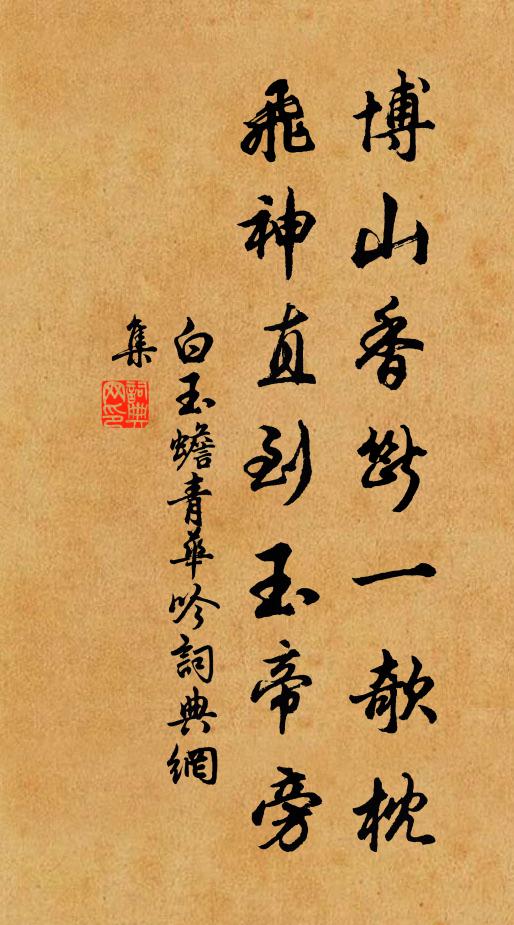 博山香斷一欹枕
飛神直到玉帝旁
白玉蟾青華吟詞典網
集
詞典網印